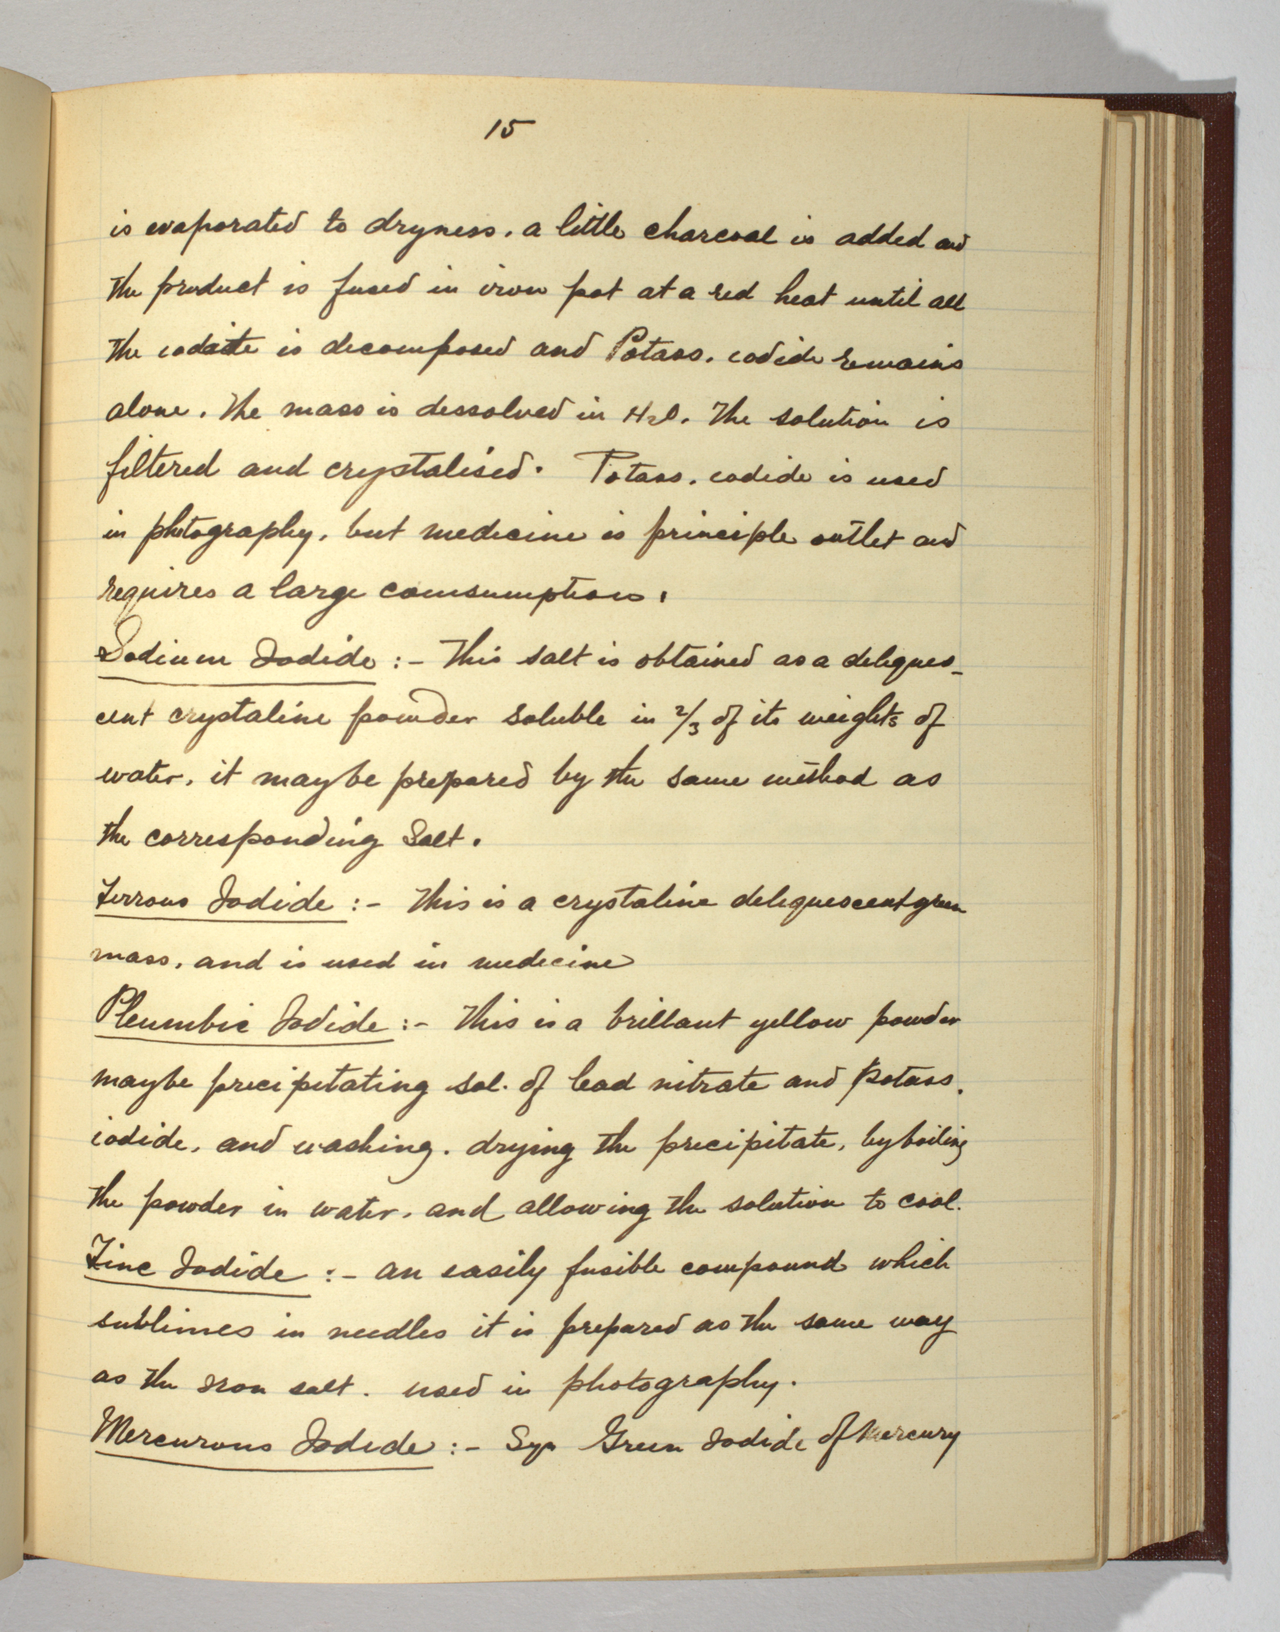 15
is evaporated to dryness. a little charcoal is added and
the product is fused in iron pot at a red heat until all
the iodate is decomposed and Potass. iodide remains
alone. The mass is dessolved in H2O. The solution is
filtered and crystalised. Potass. iodide is used
in photography, but medecine is principle outlet and
requires a large comsumption.
Sodium Iodide :- This salt is obtained as a deliques-
cent crystaline powder soluble in 2/3 of its weights of
water, it maybe prepared by the same method as
the corresponding Salt.
Ferrous Iodide :- This is a crystaline deliquescent green
mass, and is used in medecine
Plumbic Iodide :- This is a brillant yellow powder
maybe precipitating sol. of lead nitrate and Potass.
iodide, and washing. drying the precipitate, by boiling
the powder in water. and allowing the solution to cool.
Zinc Iodide :- an easily fusible compound which
sublimes in needles it is prepared as the same way
as the Iron salt. used in photography.
Mercurous Iodide :- Syn Green Iodide of Mercury